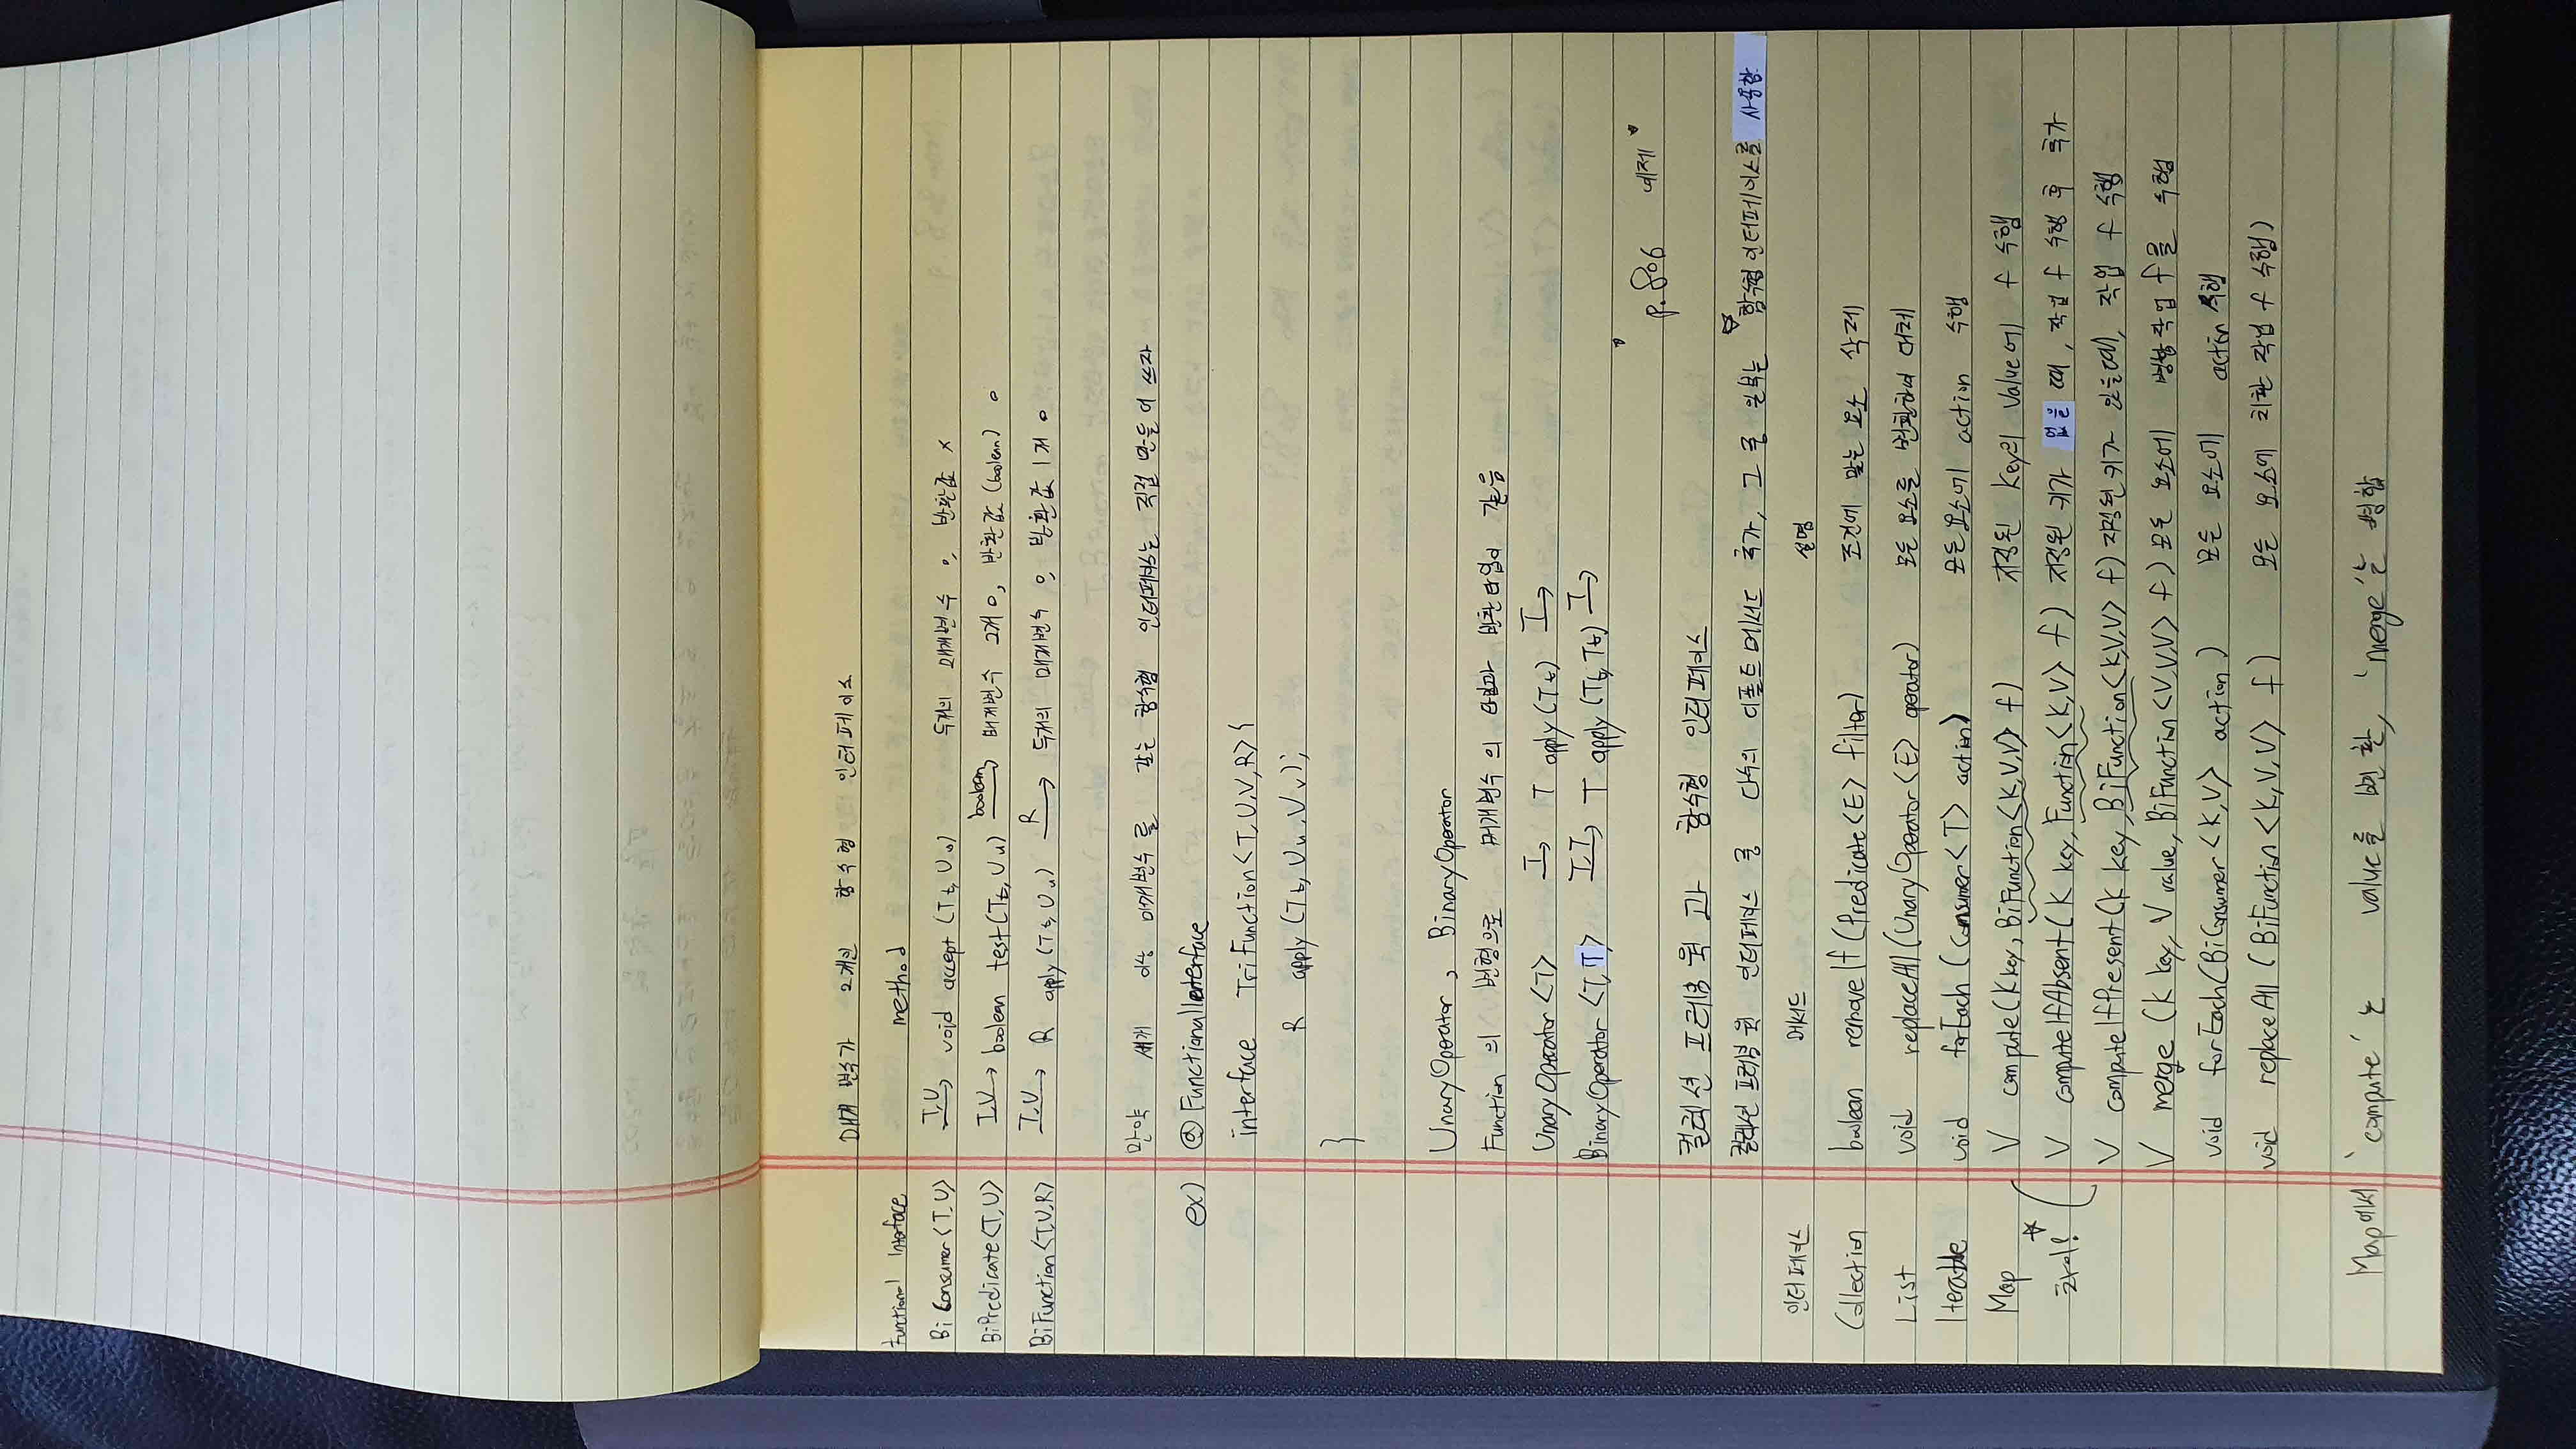 매개 변수가 2개인 함수형 인터페이스
Functional Interface method
BiConsumer<T,U> T,U→ void accept(T t, U u) 두개의 매개변수 o, 반환값 x
BiPredicate<T,U> T,U→ boolean test(T t, U u) boolean→ 매개변수 2개 o, 반환값(boolean) o
BiFunction<T,U,R> T,U→ R apply(T t, U u) R→ 두개의 매개변수 o, 반환값 1개 o
만약 세개 이상 매개변수를 갖는 함수형 인터페이스는 직접 만들어 쓰자
ex) @FunctionalInterface
interface TriFunction<T,U,V,R>{
R apply(T t, U u, V v);
}
UnaryOperator, BinaryOperator
Function의 변형으로 매개변수의 타입과 반환타입이 같음
UnaryOperator<T> T→ T apply(T t) T→
BinaryOperator<T,T> T,T→ T apply(T t, T t) T→
p.806 예제
컬렉션 프레임웍과 함수형 인터페이스
컬렉션 프레임웍 인터페이스 중 다수의 디폴트 메서드 추가, 그 중 일부는 ☆함수형 인터페이스를 사용함
인터페이스 메서드 설명
Collection boolean removeIf(Predicate<E> filter) 조건에 맞는 요소 삭제
List void replaceAll(UnaryOperator<E> operator) 모든 요소를 변환하여 대체
Iterable void forEach(Consumer<T> action) 모든 요소에 action 수행
Map V compute(K key, BiFunction<K,V,V> f) 지정된 key의 value에 f 수행
☆차이! V computeIfAbsent(K key, Function<K,V> f) 지정된 키가 없을 때, 작업 f 수행 후 추가
V computeIfPresent(K key, BiFunction<K,V,V> f) 지정된 키가 있을때, 작업 f 수행
V merge(K key, V value, BiFunction<V,V,V> f) 모든 요소에 병합작업 f를 수행
void forEach(BiConsumer<K,V> action) 모든 요소에 action 수행
void replaceAll(BiFunction<K,V,V> f) 모든 요소에 치환 작업 f 수행)
Map에서 'compute'는 value를 변환, 'merge'는 병합